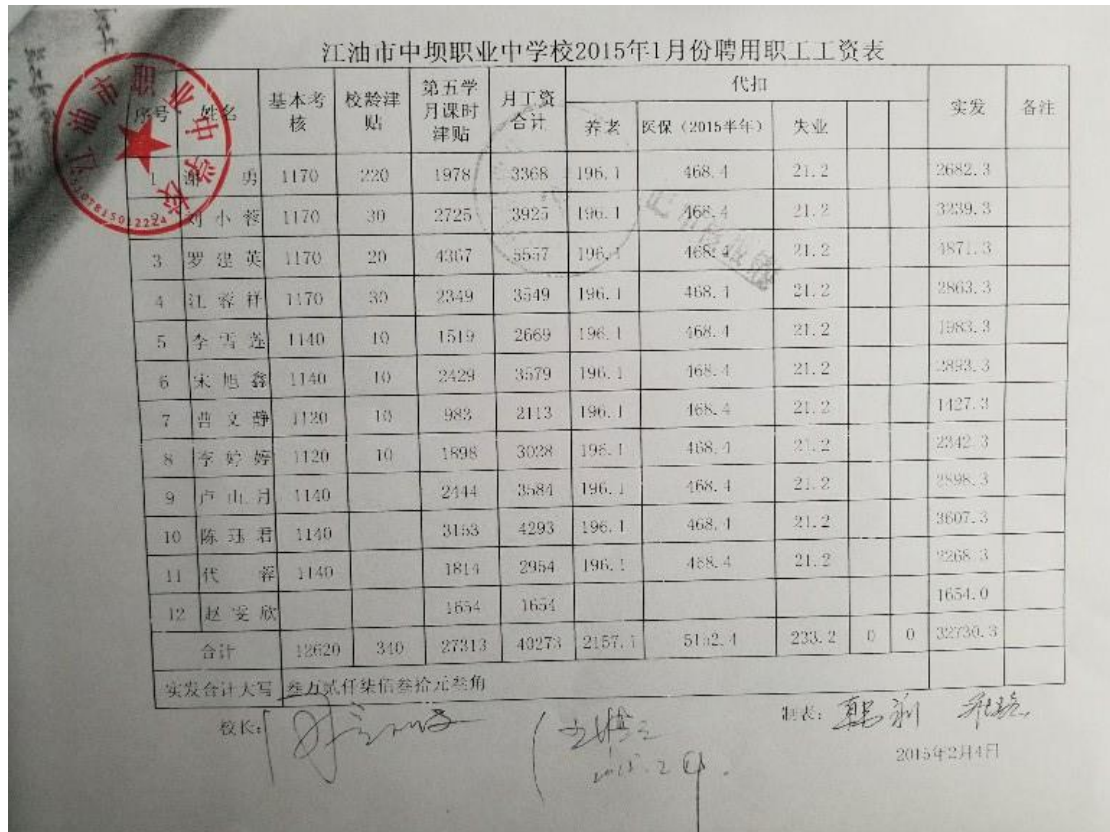 江油市中坝职业中学校2015年1月份聘用职工工资表
序号 姓名 基本考核 校龄津贴 第五学月课时津贴 月工资合计 代扣 实发 备注
养老 医保（2015半年） 失业
1 谢勇 1170 220 1978 3368 196.1 468.4 21.2 2682.3
2 刘小蓉 1170 30 2725 3925 196.1 468.4 21.2 3239.3
3 罗建英 1170 20 4367 5557 196.1 468.4 21.2 4871.3
4 江蓉祥 1170 30 2349 3549 196.1 468.4 21.2 2863.3
5 李雪莲 1140 10 1519 2669 196.1 468.4 21.2 1983.3
6 宋旭鑫 1140 10 2429 3579 196.1 468.4 21.2 2893.3
7 曹文静 1120 10 983 2113 196.1 468.4 21.2 1427.3
8 李婷婷 1120 10 1898 3028 196.1 468.4 21.2 2342.3
9 卢山月 1140 2444 3584 196.1 468.4 21.2 2898.3
10 陈珏君 1140 3153 4293 196.1 468.4 21.2 3607.3
11 代蓉 1140 1814 2954 196.1 468.4 21.2 2268.3
12 赵雯欣 1654 1654 1654.0
合计 12620 340 27313 40273 2157.1 5152.4 233.2 0 0 32730.3
实发合计大写 叁万贰仟柒佰叁拾元叁角
校长: 制表:
2015年2月4日
江油市职业中学校
5107815012224